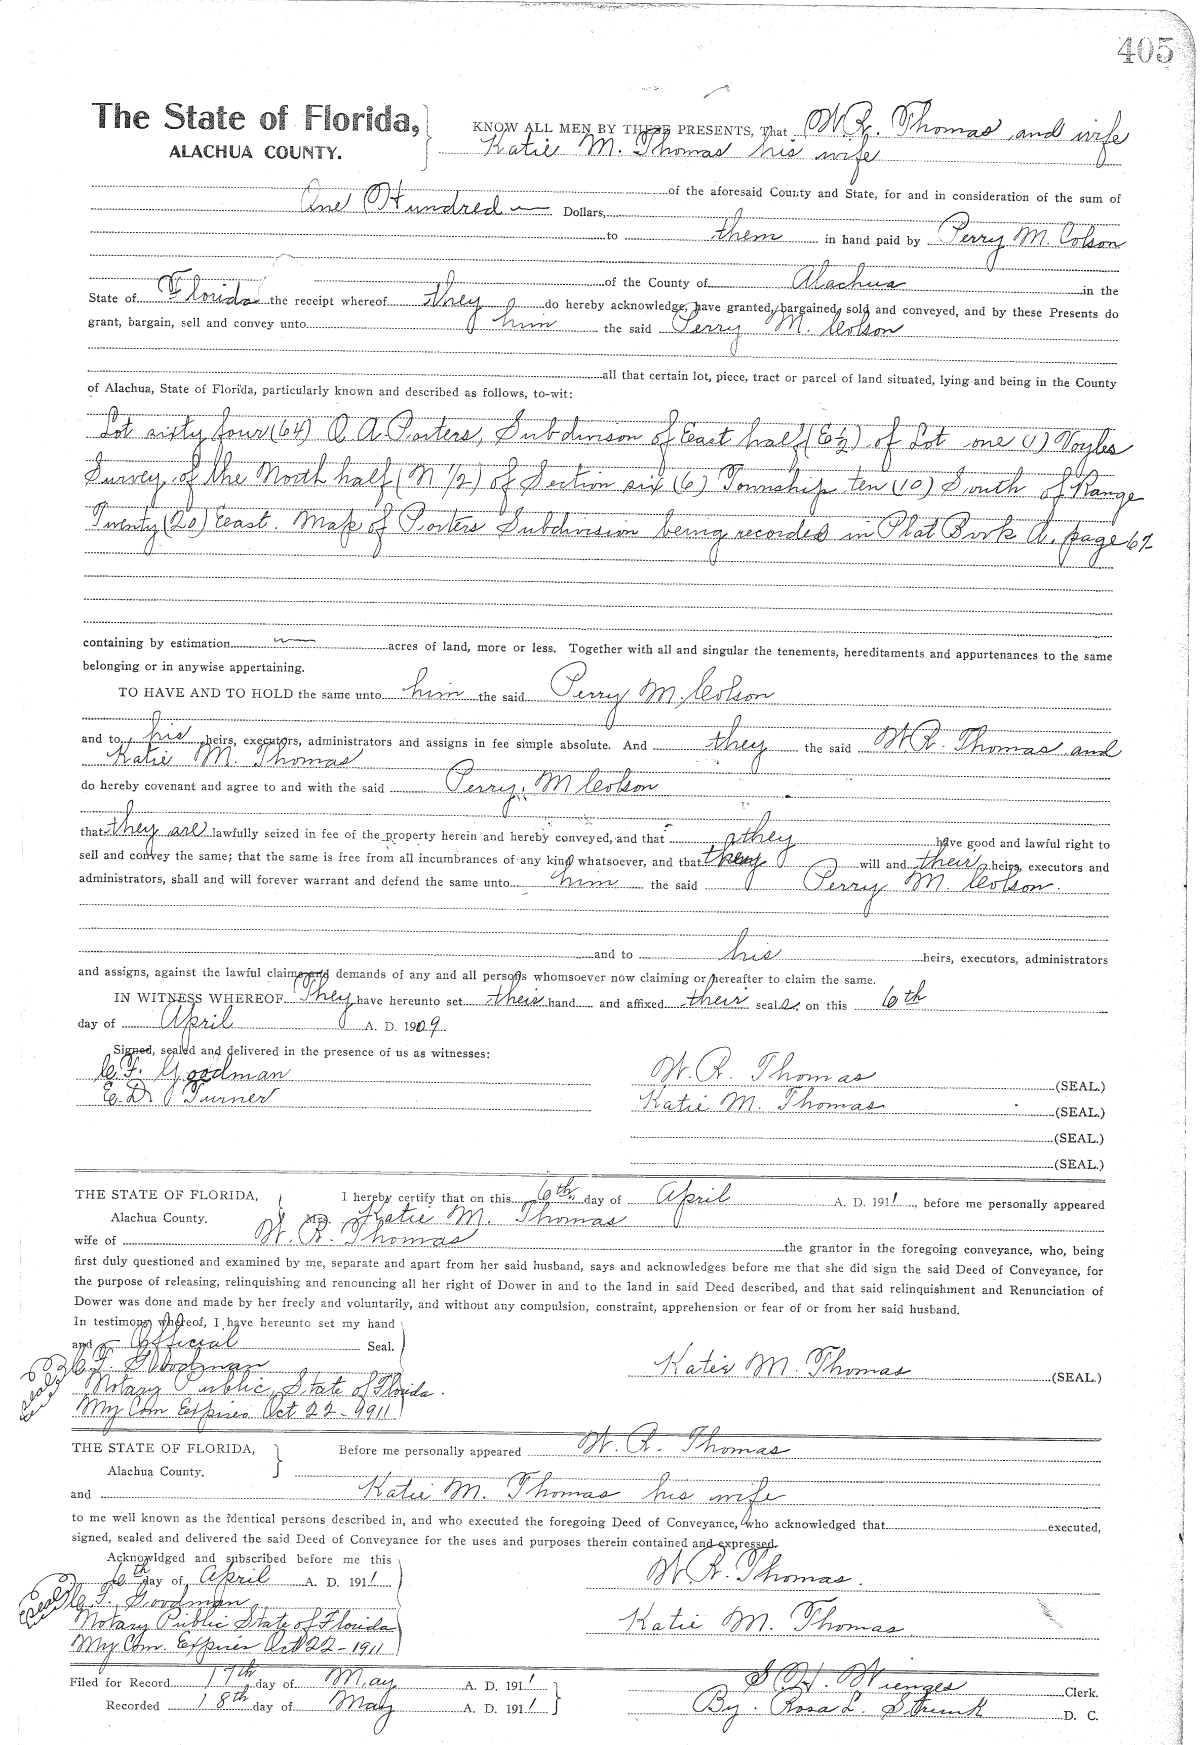 405
The State of Florida,
ALACHUA COUNTY.
KNOW ALL MEN BY THESE PRESENTS, That W R. Thomas and wife
Katie M. Thomas his wife
of the aforesaid County and State, for and in consideration of the sum of
One Hundred — Dollars,
to them in hand paid by Perry M. Colson
of the County of Alachua in the
State of Florida the receipt whereof they do hereby acknowledge, have granted, bargained, sold and conveyed, and by these Presents do
grant, bargain, sell and convey unto him the said Perry M. Colson
all that certain lot, piece, tract or parcel of land situated, lying and being in the County
of Alachua, State of Florida, particularly known and described as follows, to-wit:
Lot sixty four (64) O A. Porters, Subdivison of East half (E½) of Lot one (1) Voyles
Survey of the North half (N 1/2) of Section six (6) Township ten (10) South of Range
Twenty (20) East. Map of Porters Subdivision being recorded in Plat Book A. page
containing by estimation — acres of land, more or less. Together with all and singular the tenements, hereditaments and appurtenances to the same
belonging or in anywise appertaining.
TO HAVE AND TO HOLD the same unto him the said Perry M. Colson
and to his heirs, executors, administrators and assigns in fee simple absolute. And they the said W R. Thomas and
Katie M. Thomas
do hereby covenant and agree to and with the said Perry. M Colson
that they are lawfully seized in fee of the property herein and hereby conveyed, and that they have good and lawful right to
sell and convey the same; that the same is free from all incumbrances of any kind whatsoever, and that they will and their heirs, executors and
administrators, shall and will forever warrant and defend the same unto him the said Perry M. Colson.
and to his heirs, executors, administrators
and assigns, against the lawful claims and demands of any and all persons whomsoever now claiming or hereafter to claim the same.
IN WITNESS WHEREOF They have hereunto set their hand and affixed their seals, on this 6th
day of April A. D. 1909.
Signed, sealed and delivered in the presence of us as witnesses:
C. F. Goodman
E. D. Turner
W. R. Thomas (SEAL.)
Katie M. Thomas (SEAL.)
(SEAL.)
(SEAL.)
THE STATE OF FLORIDA,
Alachua County.
I hereby certify that on this 6th day of April A. D. 1911, before me personally appeared
Mrs. Katie M. Thomas
wife of W. R. Thomas the grantor in the foregoing conveyance, who, being
first duly questioned and examined by me, separate and apart from her said husband, says and acknowledges before me that she did sign the said Deed of Conveyance, for
the purpose of releasing, relinquishing and renouncing all her right of Dower in and to the land in said Deed described, and that said relinquishment and Renunciation of
Dower was done and made by her freely and voluntarily, and without any compulsion, constraint, apprehension or fear of or from her said husband.
In testimony whereof, I have hereunto set my hand
and Official Seal.
C. F. Goodman
Notary Public, State of Florida.
My Com Expires Oct 22-1911
Katie M. Thomas (SEAL)
THE STATE OF FLORIDA,
Alachua County.
Before me personally appeared W. R. Thomas
and Katie M. Thomas his wife
to me well known as the identical persons described in, and who executed the foregoing Deed of Conveyance, who acknowledged that executed,
signed, sealed and delivered the said Deed of Conveyance for the uses and purposes therein contained and expressed.
Acknowldged and subscribed before me this
6th day of April A. D. 1911
Seal
C. F. Goodman
Notary Public State of Florida
My Com. Expires Oct 22-1911
W. R. Thomas.
Katie M. Thomas
Filed for Record 17th day of May A. D. 1911
Recorded 18th day of May A. D. 1911
S. H. Wienges Clerk.
By. Rosa L. D. C.